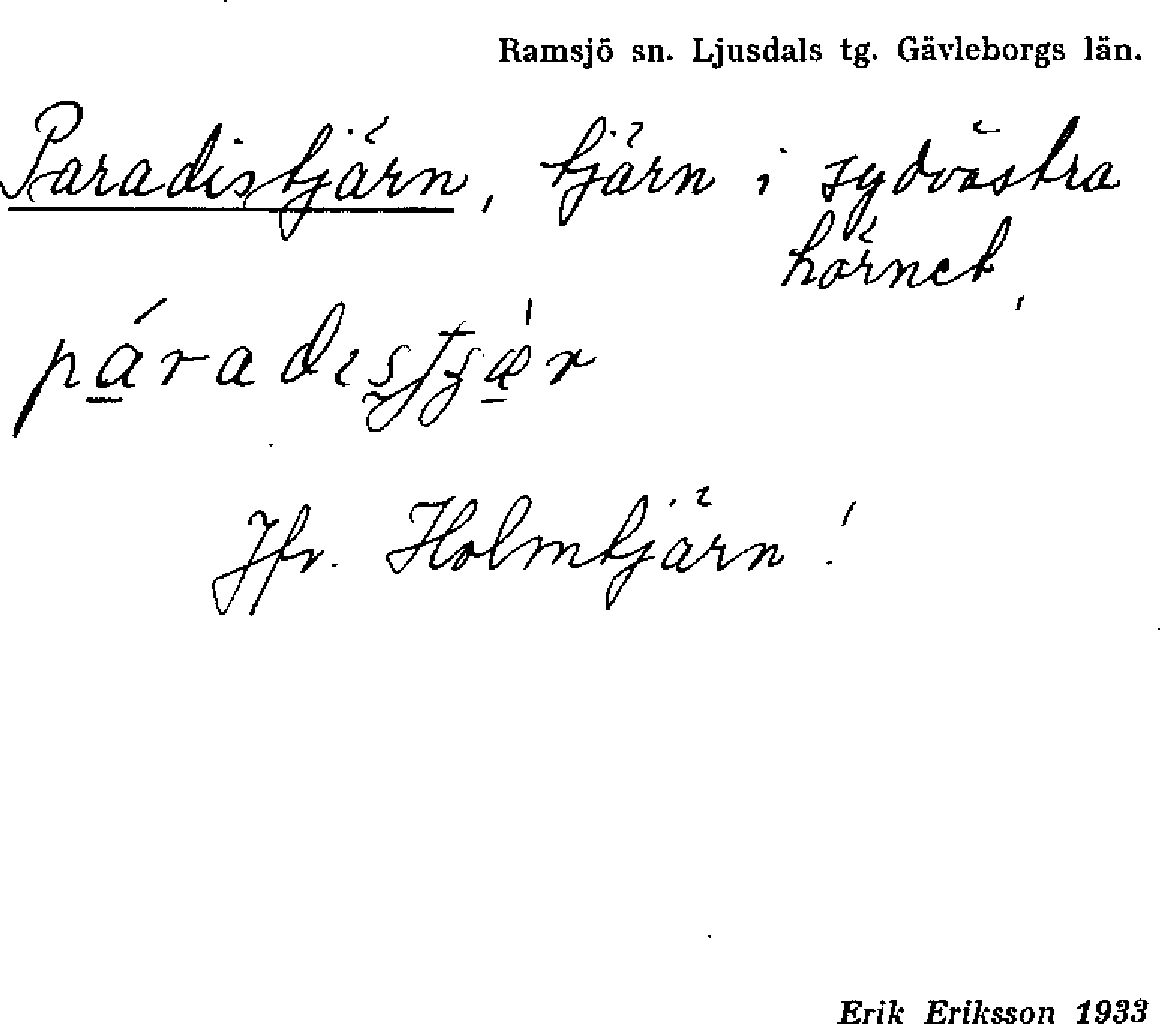 Ramsjö sn. Ljusdals tg. Gävleborgs län.
Paradistjärn, tjärn i sydvästra
hörnet,
Jfr. Holmtjärn!
Erik Eriksson 1933